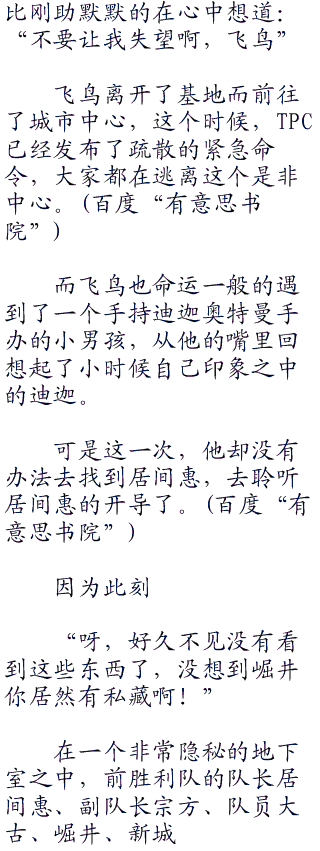 比刚助默默的在心中想道：
“不要让我失望啊，飞鸟”
飞鸟离开了基地而前往
了城市中心，这个时候，TPC
已经发布了疏散的紧急命
令，大家都在逃离这个是非
中心。(百度“有意思书
院”)
而飞鸟也命运一般的遇
到了一个手持迪迦奥特曼手
办的小男孩，从他的嘴里回
想起了小时候自己印象之中
的迪迦。
可是这一次，他却没有
办法去找到居间惠，去聆听
居间惠的开导了。(百度“有
意思书院”)
因为此刻
“呀，好久不见没有看
到这些东西了，没想到崛井
你居然有私藏啊！”
在一个非常隐秘的地下
室之中，前胜利队的队长居
间惠、副队长宗方、队员大
古、崛井、新城